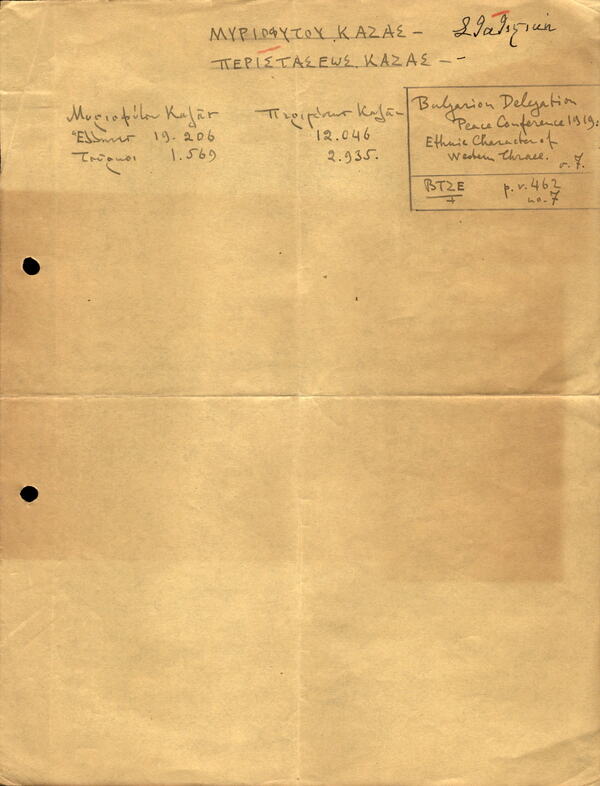 ΜΥΡΙΟΦΥΤΟΥ ΚΑΖΑΣ –
Στατιστική
ΠΕΡΙΣΤΑΣΕΩΣ ΚΑΖΑΣ – -
Μυριοφύτου Καζᾶς
Ἕλληνες 19.206
Τοῦρκοι 1.569
Περιστάσεως Καζᾶς
12.046
2.935.
Bulgarian Delegation
Peace Conference 1919:
Ethnic Character of
Western Thrace.
σ. 7.
ΒΤΣΕ
p. v. 462
no. 7